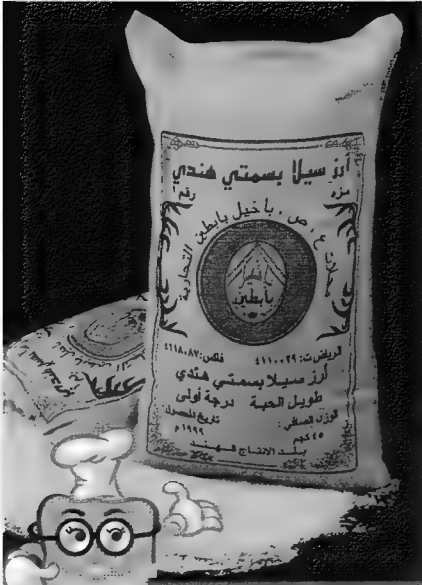 أرز سيلا بسمتي هندي
محلات ع . ص . باخيل بابطين التجارية
بابطين
الرياض ت: ٤١١٠٠٢٩ فاكس: ٤١١٨٠٨٢
أرز سيلا بسمتي هندي
طويل الحبة درجة أولى
الوزن الصافي : تاريخ المحصول
٤٥ كجم ١٩٩٩م
بلد الانتاج الهند